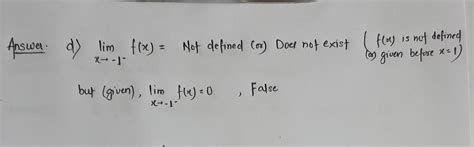 Answer. d) lim x→-1⁻ f(x) = Not defined (or) Does not exist ( f(x) is not defined (or) given before x=1)
but (given), lim x→-1⁻ f(x)=0 , False